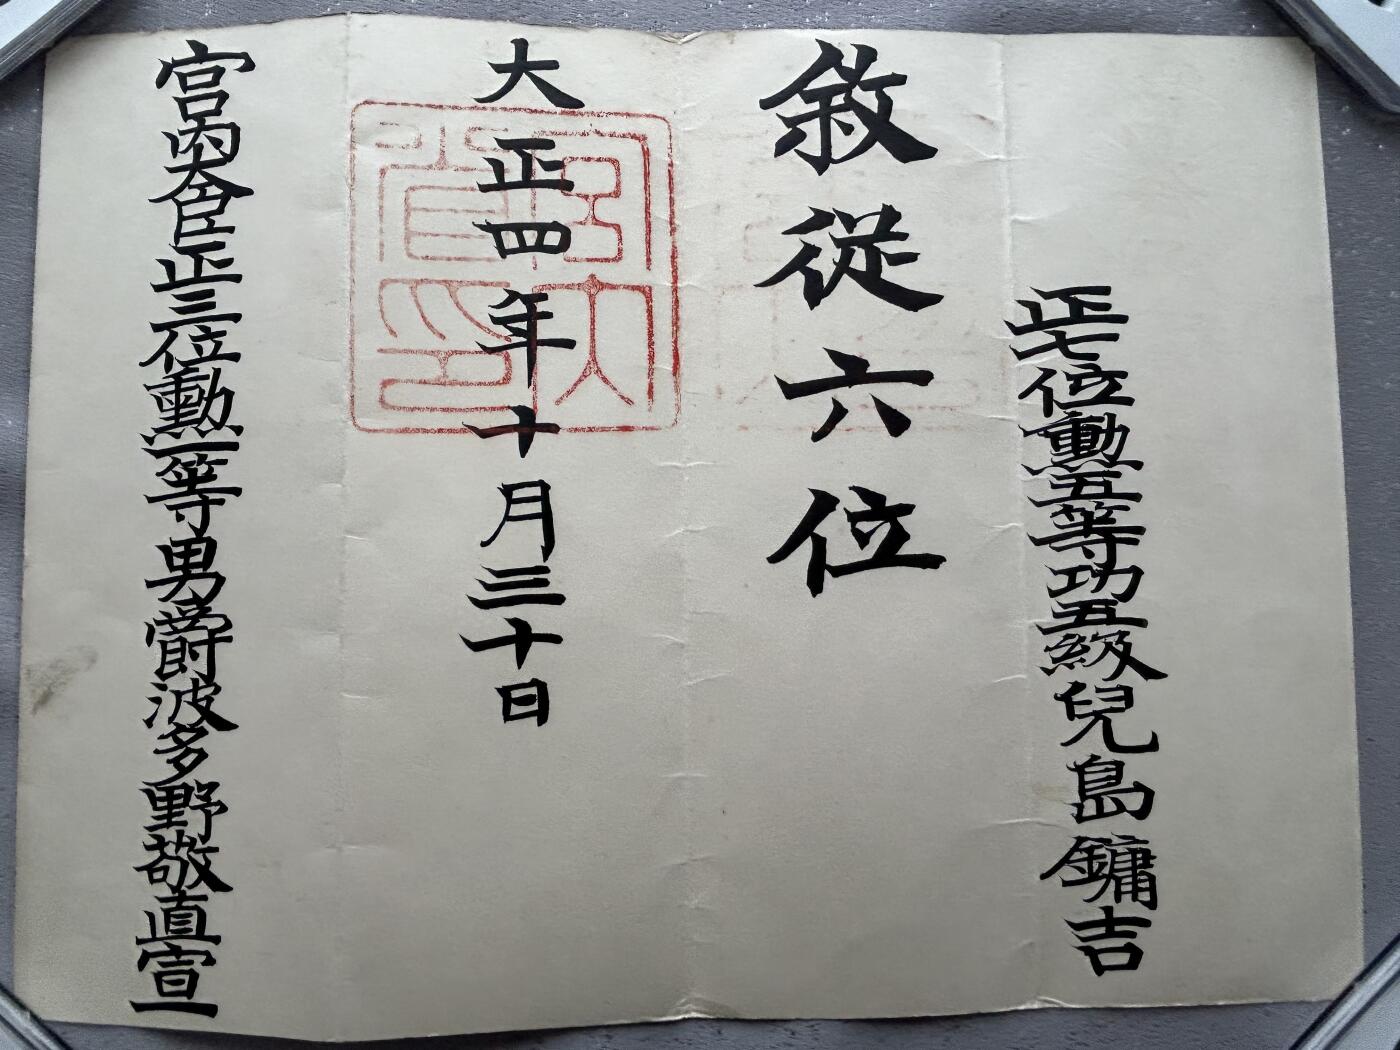 正七位勳五等功五級兒島鏞吉
敘從六位
大正四年十月三十日
宮内大臣正三位勳一等男爵波多野敬直宣
宮内大臣官印